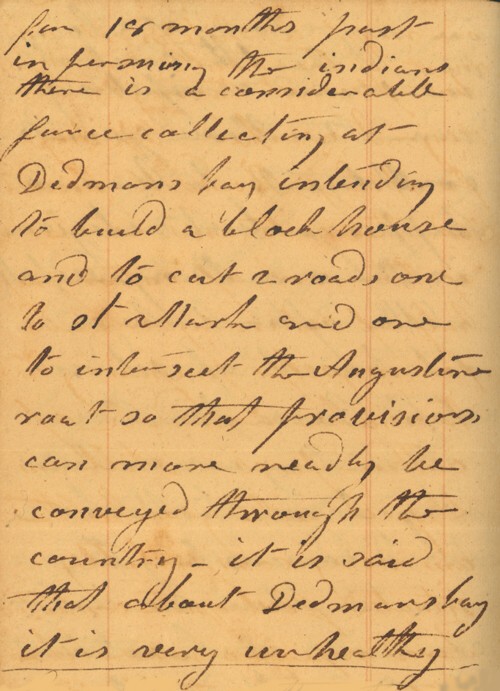 for 18 months past
in persuing the indians
there is a considerable
force collecting at
Dedmans bay intending
to build a block house
and to cut 2 roads one
to St Mark and one
to intersect the Augustine
roat so that provisions
can more readly be
conveyed through the
country - it is said
that about Dedmans bay
it is very unhealthy